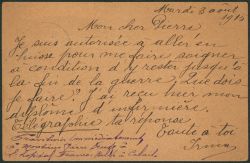 Mardi 3 août
1914
Mon cher Pierre,
Je suis autorisée à aller en
Suisse pour me faire soigner
à condition d'y rester jusqu'à
la fin de la guerre. Que dois
je faire? J'ai reçu hier mon
diplôme d'infirmière.
Télégraphie ta réponse.
toute à toi
Irma